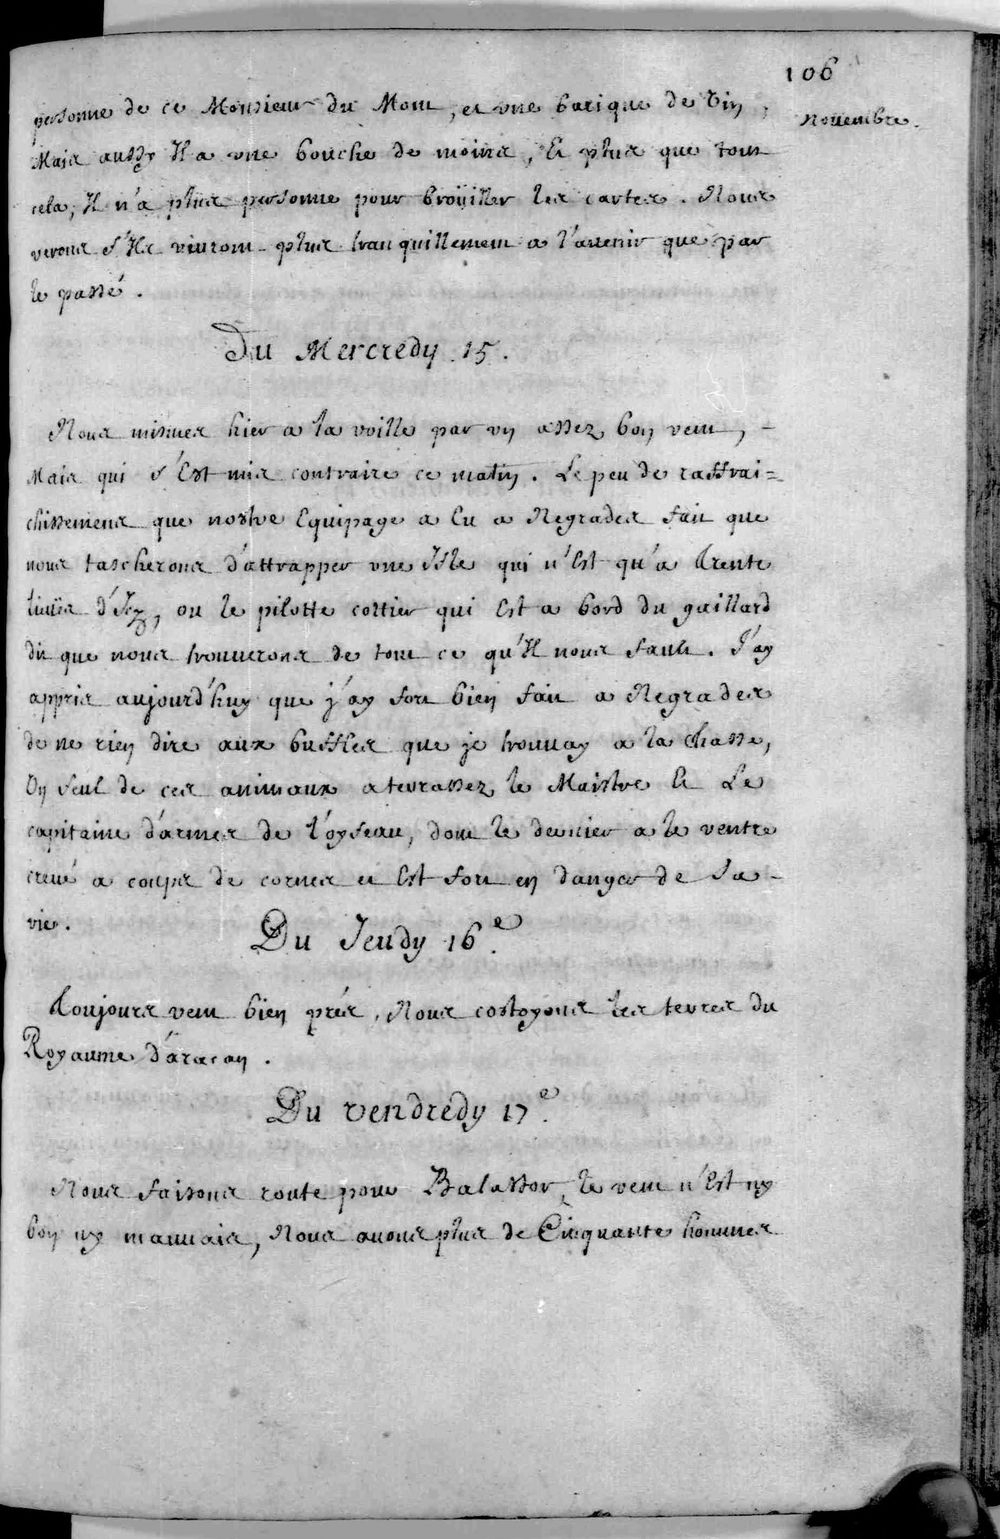 106
Nouembre.
personne de ce Monsieur du Mont, et vne barique de Vin,
Mais aussy Il a vne bouche de moins, Et plus que tout
cela, Il n'a plus personne pour broüiller les cartes. Nous
verons s'Ils viuront plus tranquillement a l'auenir que par
le passé.
Du Mercredy 15.
Nous mismes hier a la voille par vn assez bon vent,
Mais qui s'Est mis contraire ce matin. Le peu de raffrai=
chissemens que nostre Equipage a Eu a Negrades fait que
nous tascherons d'attrapper vne Isle qui n'Est qu'a trente
lieües d'Icy, ou le pilotte costier qui Est a bord du gaillard
dit que nous trouuerons de tout ce qu'Il nous fault. J'ay
appris aujourd'huy que j'ay fort bien fait a Negrades
de ne rien dire aux buffles que je trouuay a la chasse,
Vn seul de ces animaux a terrassez le Maistre Et Le
capitaine d'armes de l'oyseau, dont le dernier a le ventre
creué a coups de cornes et Est fort en danger de sa
vie.
Du Jeudy 16e.
Toujours vent bien prés, Nous costoyons les terres du
Royaume d'aracan.
Du vendredy 17e.
Nous faisons route pour Balassor, le vent n'Est ny
bon ny mauuais, Nous auons plus de Cinquante hommes